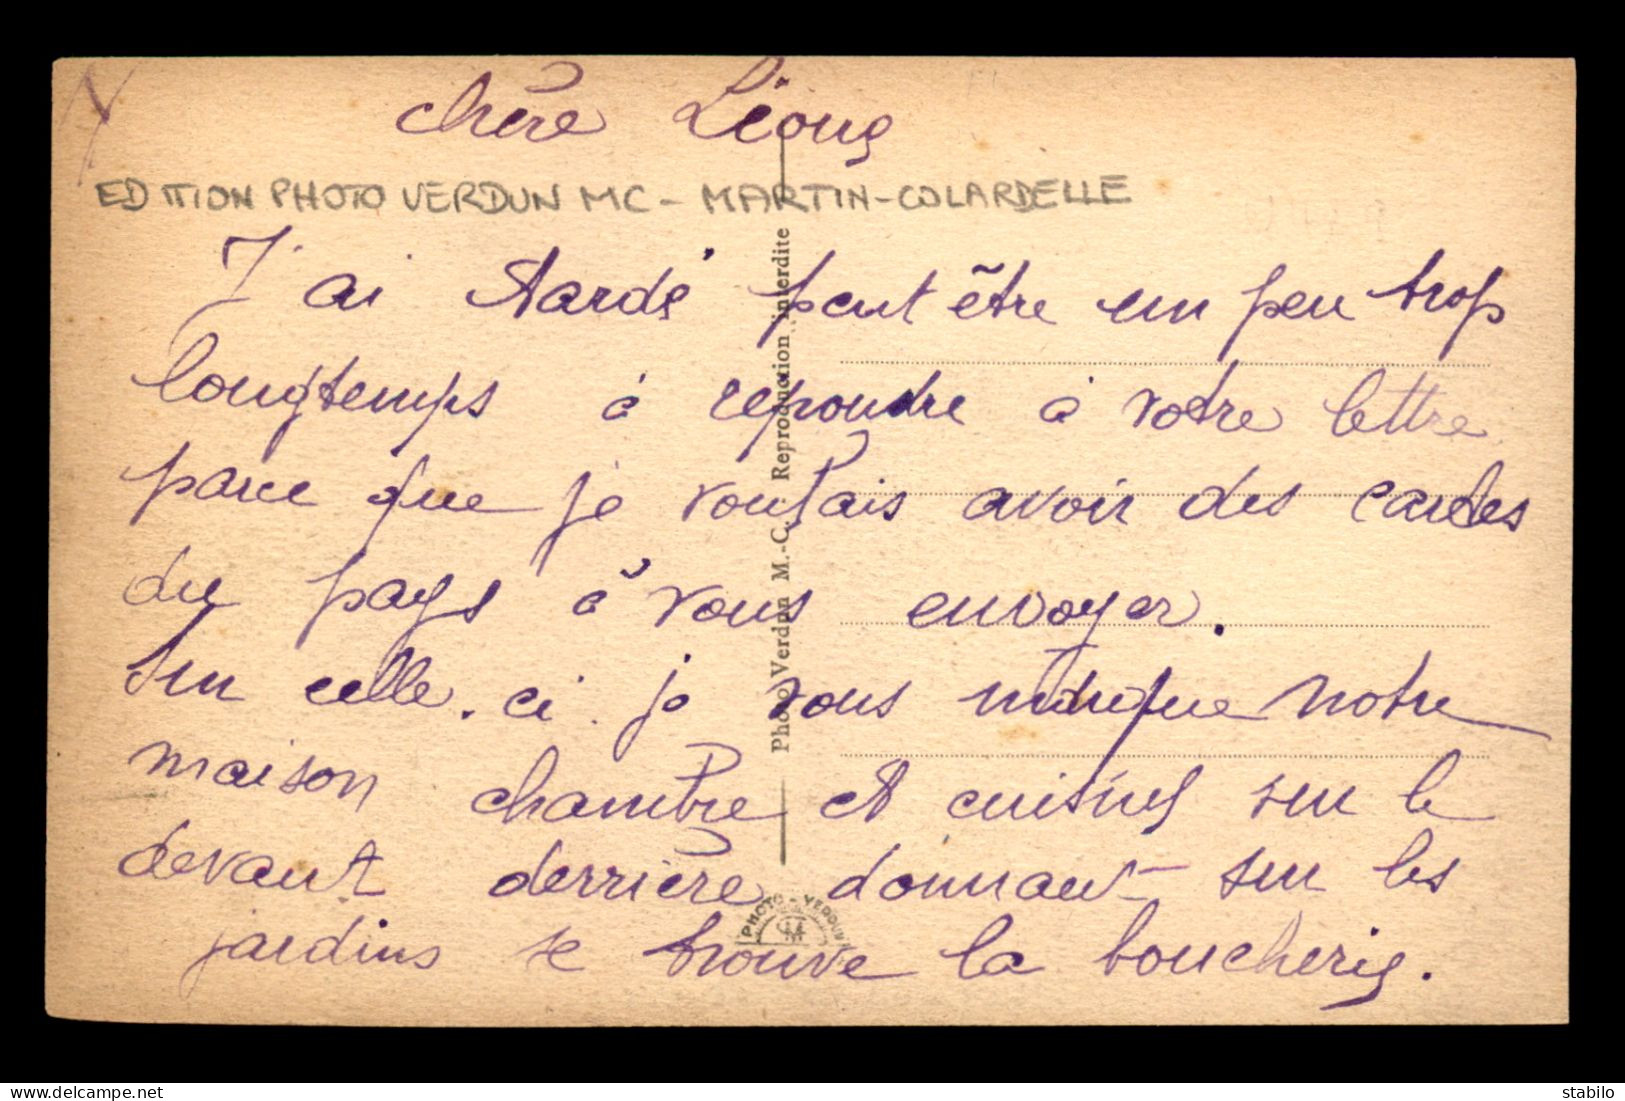 chère Léone
EDITION PHOTO VERDUN MC - MARTIN-COLARDELLE
J'ai tardé peut être un peu trop
longtemps à repondre à votre lettre
parce que je voulais avoir des cartes
du pays à vous envoyer.
Sur celle.ci je vous indique notre
maison chambre et cuisine sur le
devant derrière donnant sur les
jardins se trouve la boucherie.
Photo Verdun M.-C. Reproduction interdite
PHOTO-VERDUN
delcampe.net
stabilo